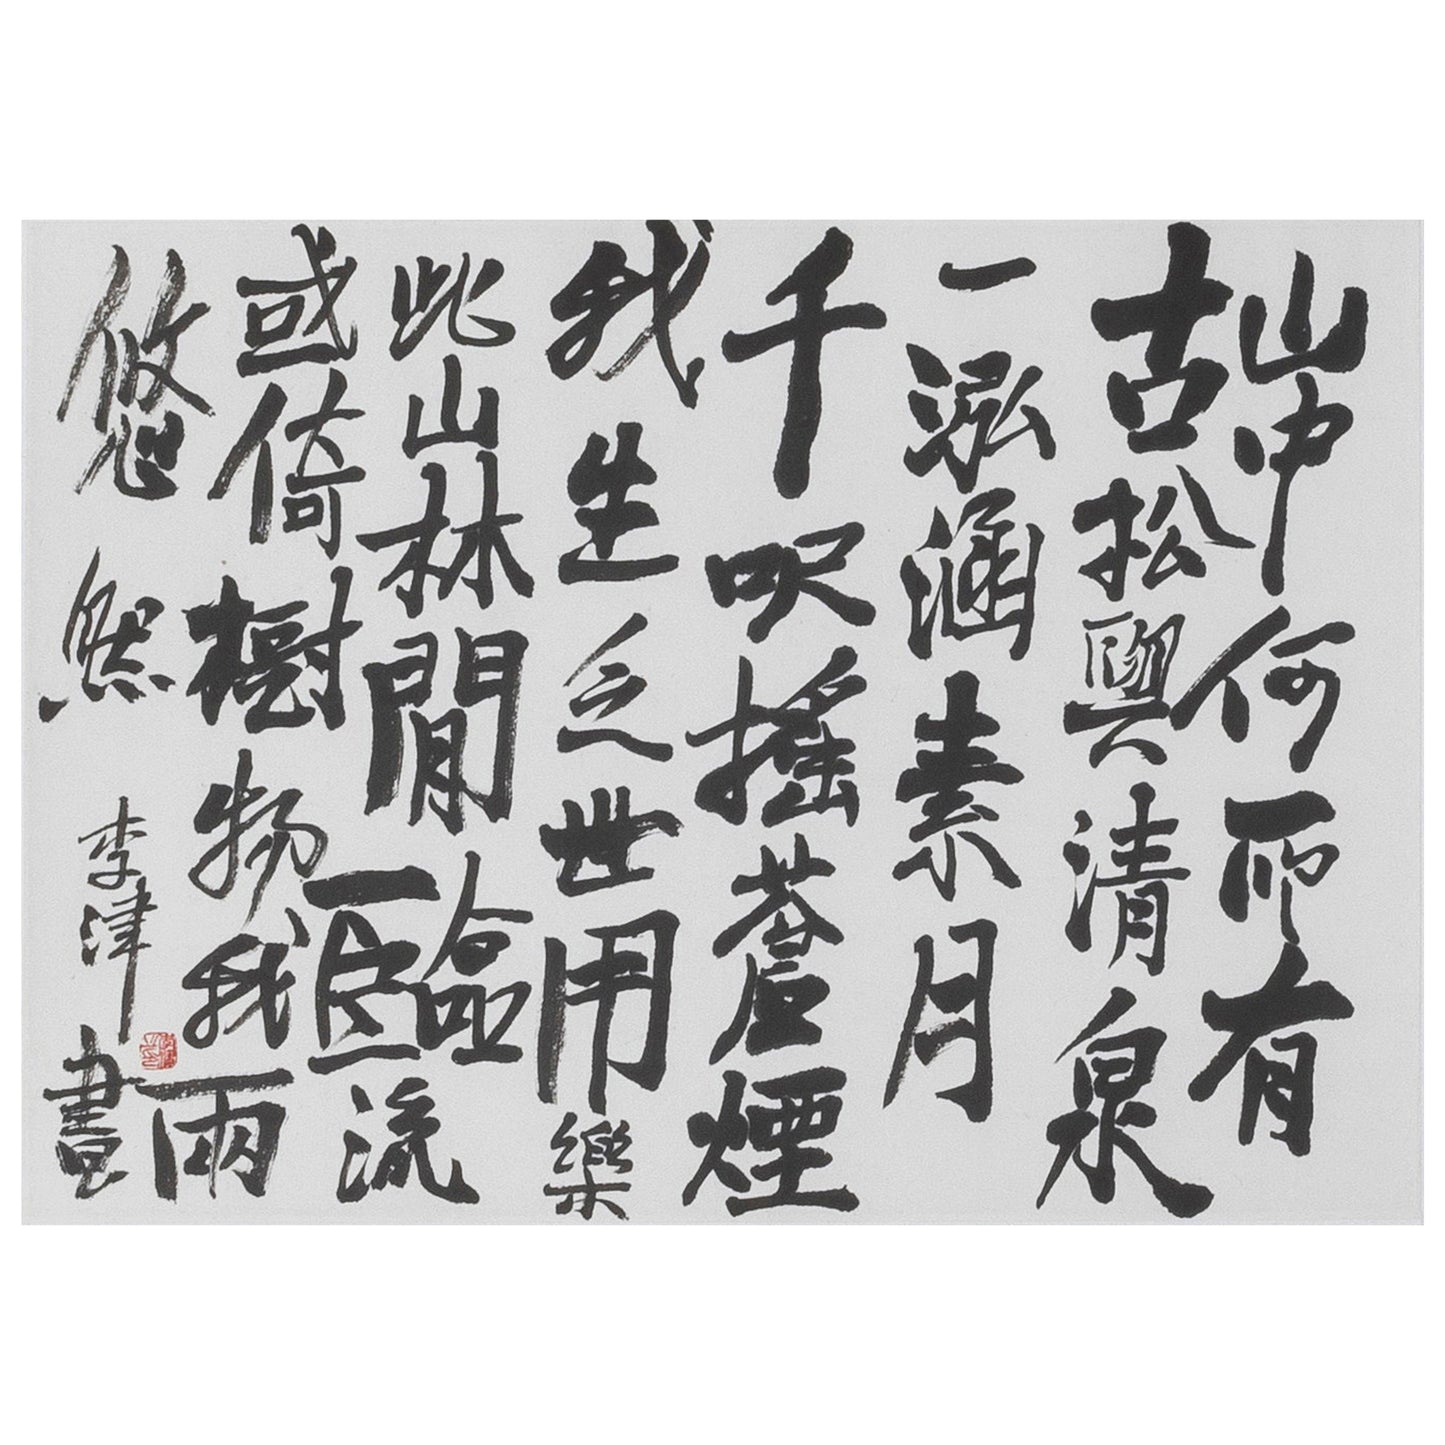 山中何所有
古松與清泉
一泓涵素月
千呎搖蒼煙
我生之世用樂
此山林閒臨流
或倚樹物我兩
悠然
李津書